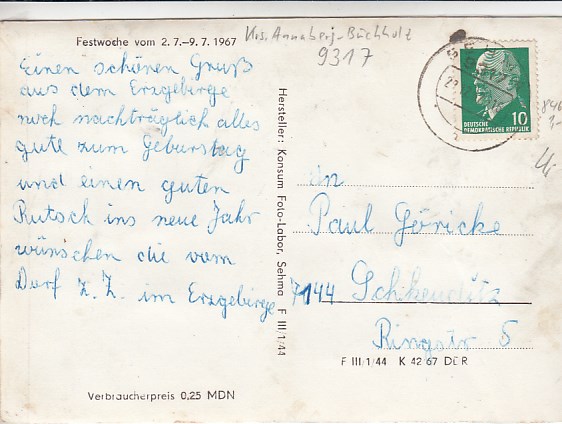 Festwoche vom 2. 7.–9. 7. 1967
Krs. Annaberg-Buchholz
9317
Einen schönen Gruß
aus dem Erzgebirge
noch nachträglich alles
gute zum Geburstag
und einen guten
Rutsch ins neue Jahr
wünschen die vom
Dorf z. Z. im Erzgebirge
Verbraucherpreis 0,25 MDN
Hersteller: Konsum Foto-Labor, Sehma F III/1/44
10
DEUTSCHE
DEMOKRATISCHE REPUBLIK
An
Paul Göricke
7144 Schkeuditz
Ringstr 5
F III/1/44 K 42 67 DDR